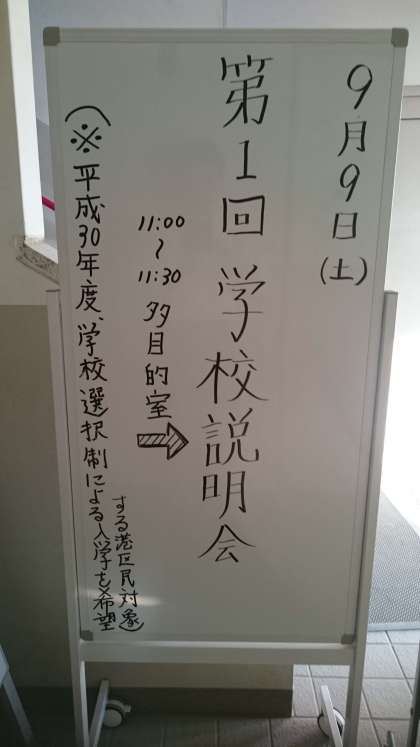 9月9日(土)
第1回 学校説明会
11:00
〜
11:30
多目的室
(※平成30年度、学校選択制による入学を希望
する港区民対象)